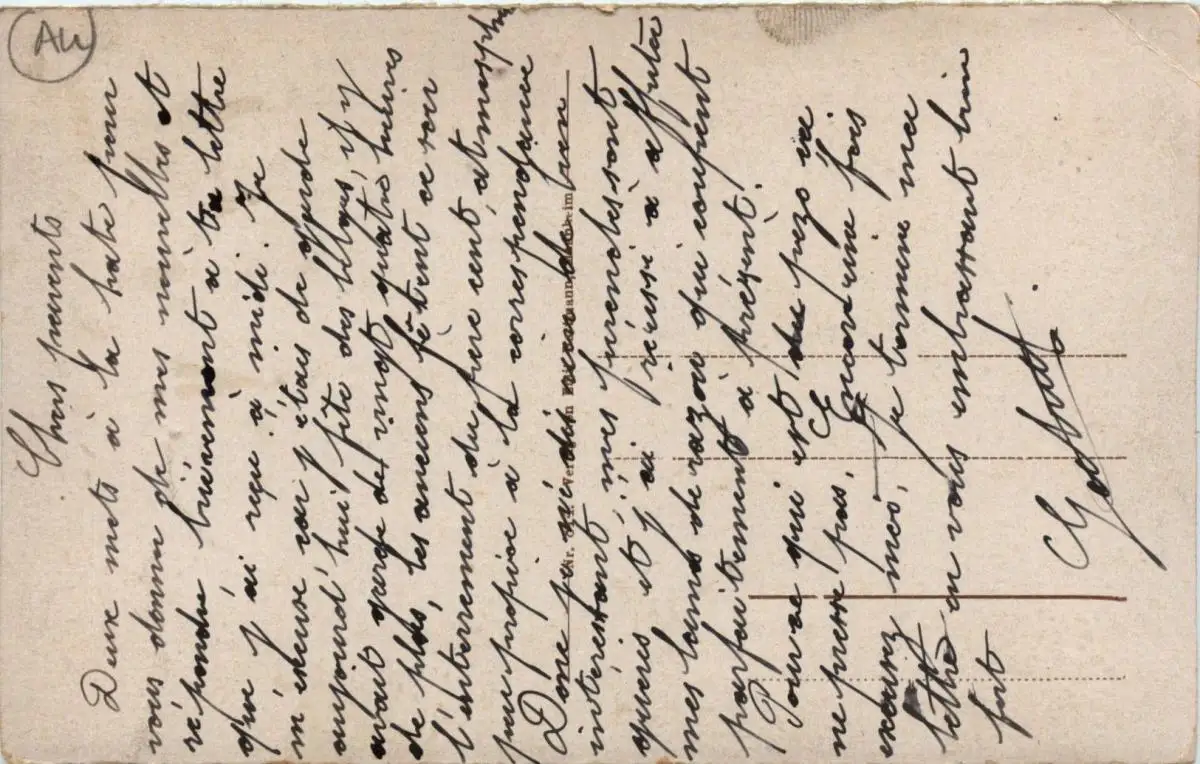 AU
Chers parents
Deux mots à la hate pour
vous donne de mes nouvelles et
répondre brièvement a ta lettre
que j'ai reçu à midi. Je
m'excuse car j'étais de garde
aujourd'hui fête des bleus, il y
avait garde de vingt quatre heures
de plus, les anciens fêtent ce soir
l'enterrement du pere cent atmosphère
peu propice à la correspondance
Donc je
intéressant, mes furoncles sont
guéris et j'ai réussi a affuta
mes lames de razoir qui coupent
parfaitement a présent.
Pour ce qui est du pézo ça
ne presse pas, Encore une fois
excusez moi, je termine ma
lettre en vous embrassant bien
fort